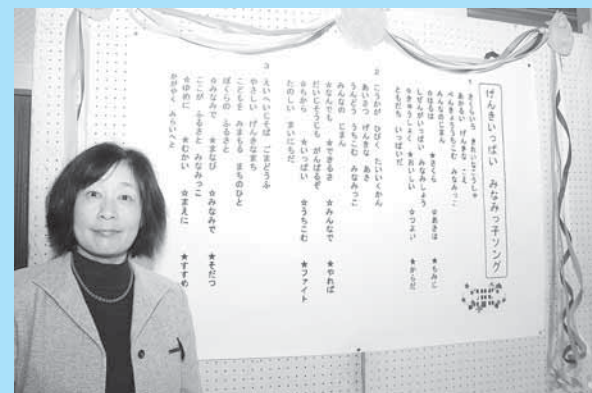 げんきいっぱい みなみっ子ソング
1
さくらいろ きれいなこうしゃ
あかるい げんきな こえ
べんきょうちこむ みなみっこ
みんなのじまん
☆はるは ★さくら ☆あきは ★もみじ
しぜんがいっぱい みなみしょう
☆きゅうしょく ★おいしい ☆つよい ★からだ
ともだち いっぱいだ
2
こうかが ひびく たいいくかん
あいさつ げんきな あさ
うんどう うちこむ みなみっこ
みんなの じまん
☆なんでも ★できるさ ☆みんなで ★やれば
だいじそうじも がんばるぞ
☆ちから ★いっぱい ☆うちこむ ★ファイト
たのしい まいにちだ
3
えいへいじそば ごまどうふ
やさしい げんきなまち
こどもを みまもる まちのひと
ぼくらの ふるさと
☆みなみで ★まなび ☆みなみで ★そだつ
ここが ふるさと みなみっこ
☆ゆめに ★むかい ☆まえに ★すすめ
かがやく みらいへと